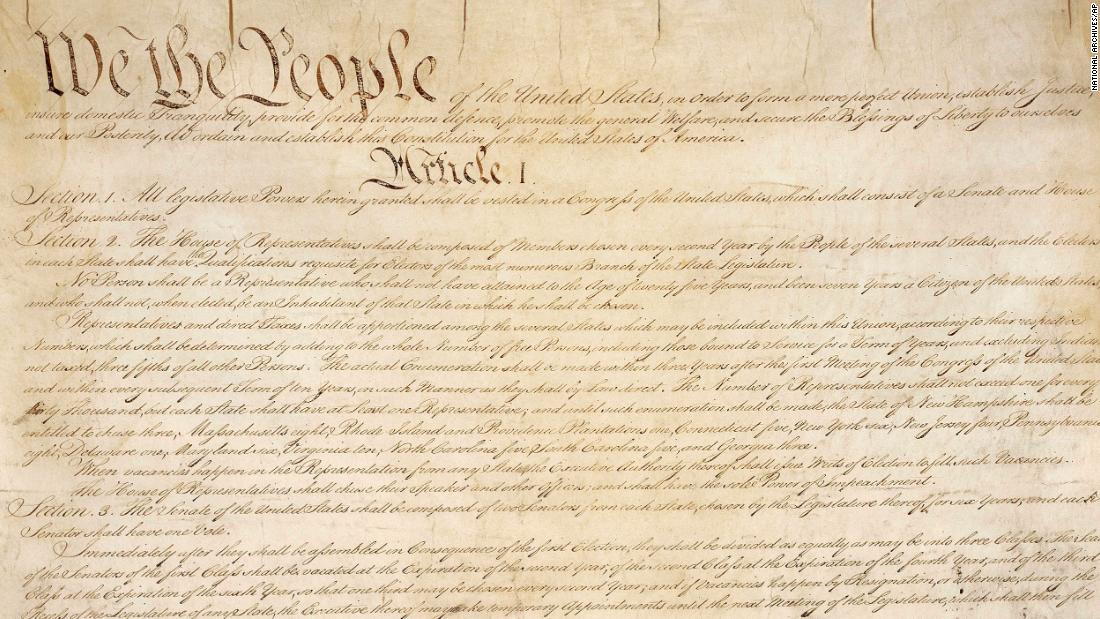 We the People of the United States, in Order to form a more perfect Union, establish Justice,
insure domestic Tranquility, provide for the common defence, promote the general Welfare, and secure the Blessings of Liberty to ourselves
and our Posterity, do ordain and establish this Constitution for the United States of America.
Article. I.
Section. 1. All legislative Powers herein granted shall be vested in a Congress of the United States, which shall consist of a Senate and House
of Representatives.
Section. 2. The House of Representatives shall be composed of Members chosen every second Year by the People of the several States, and the Electors
in each State shall have the Qualifications requisite for Electors of the most numerous Branch of the State Legislature.
No Person shall be a Representative who shall not have attained to the Age of twenty five Years, and been seven Years a Citizen of the United States,
and who shall not, when elected, be an Inhabitant of that State in which he shall be chosen.
Representatives and direct Taxes shall be apportioned among the several States which may be included within this Union, according to their respective
Numbers, which shall be determined by adding to the whole Number of free Persons, including those bound to Service for a Term of Years, and excluding Indians
not taxed, three fifths of all other Persons. The actual Enumeration shall be made within three Years after the first Meeting of the Congress of the United States,
and within every subsequent Term of ten Years, in such Manner as they shall by Law direct. The Number of Representatives shall not exceed one for every
thirty Thousand, but each State shall have at Least one Representative; and until such enumeration shall be made, the State of New Hampshire shall be
entitled to chuse three, Massachusetts eight, Rhode Island and Providence Plantations one, Connecticut five, New York six, New Jersey four, Pennsylvania
eight, Delaware one, Maryland six, Virginia ten, North Carolina five, South Carolina five, and Georgia three.
When vacancies happen in the Representation from any State, the Executive Authority thereof shall issue Writs of Election to fill such Vacancies.
The House of Representatives shall chuse their Speaker and other Officers; and shall have the sole Power of Impeachment.
Section. 3. The Senate of the United States shall be composed of two Senators from each State, chosen by the Legislature thereof, for six Years; and each
Senator shall have one Vote.
Immediately after they shall be assembled in Consequence of the first Election, they shall be divided as equally as may be into three Classes. The Seats
of the Senators of the first Class shall be vacated at the Expiration of the second Year, of the second Class at the Expiration of the fourth Year, and of the third
Class at the Expiration of the sixth Year, so that one third may be chosen every second Year; and if Vacancies happen by Resignation, or otherwise, during the
Recess of the Legislature of any State, the Executive thereof may make temporary Appointments until the next Meeting of the Legislature, which shall then fill
NATIONAL ARCHIVES/AP